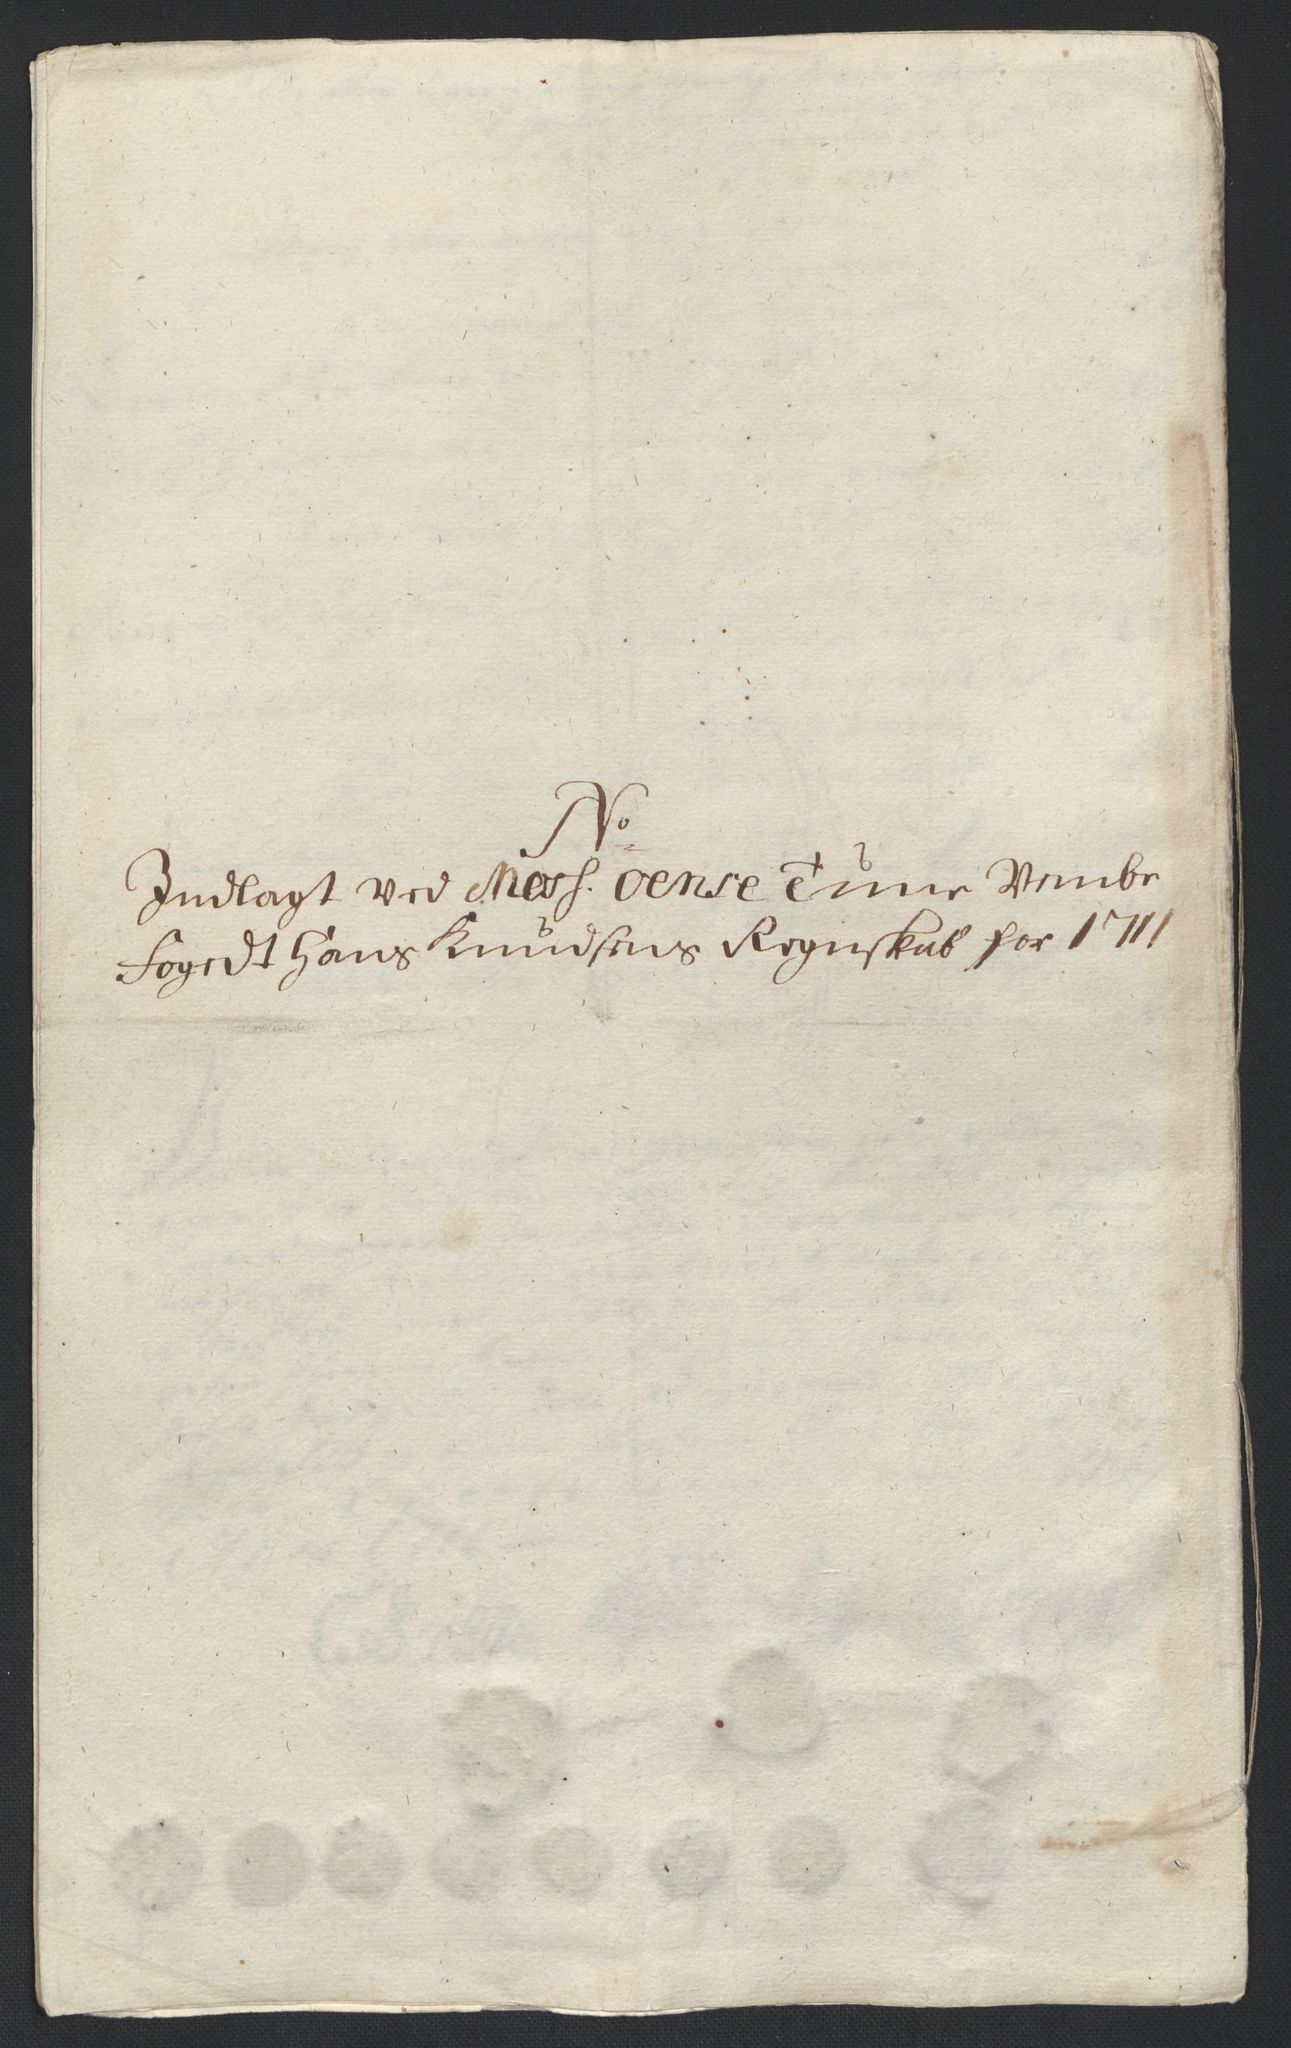 No
Indlagt ved Moss. Oense Tune Vembe
fogedt Hans Knudsens Regnskab for 1711